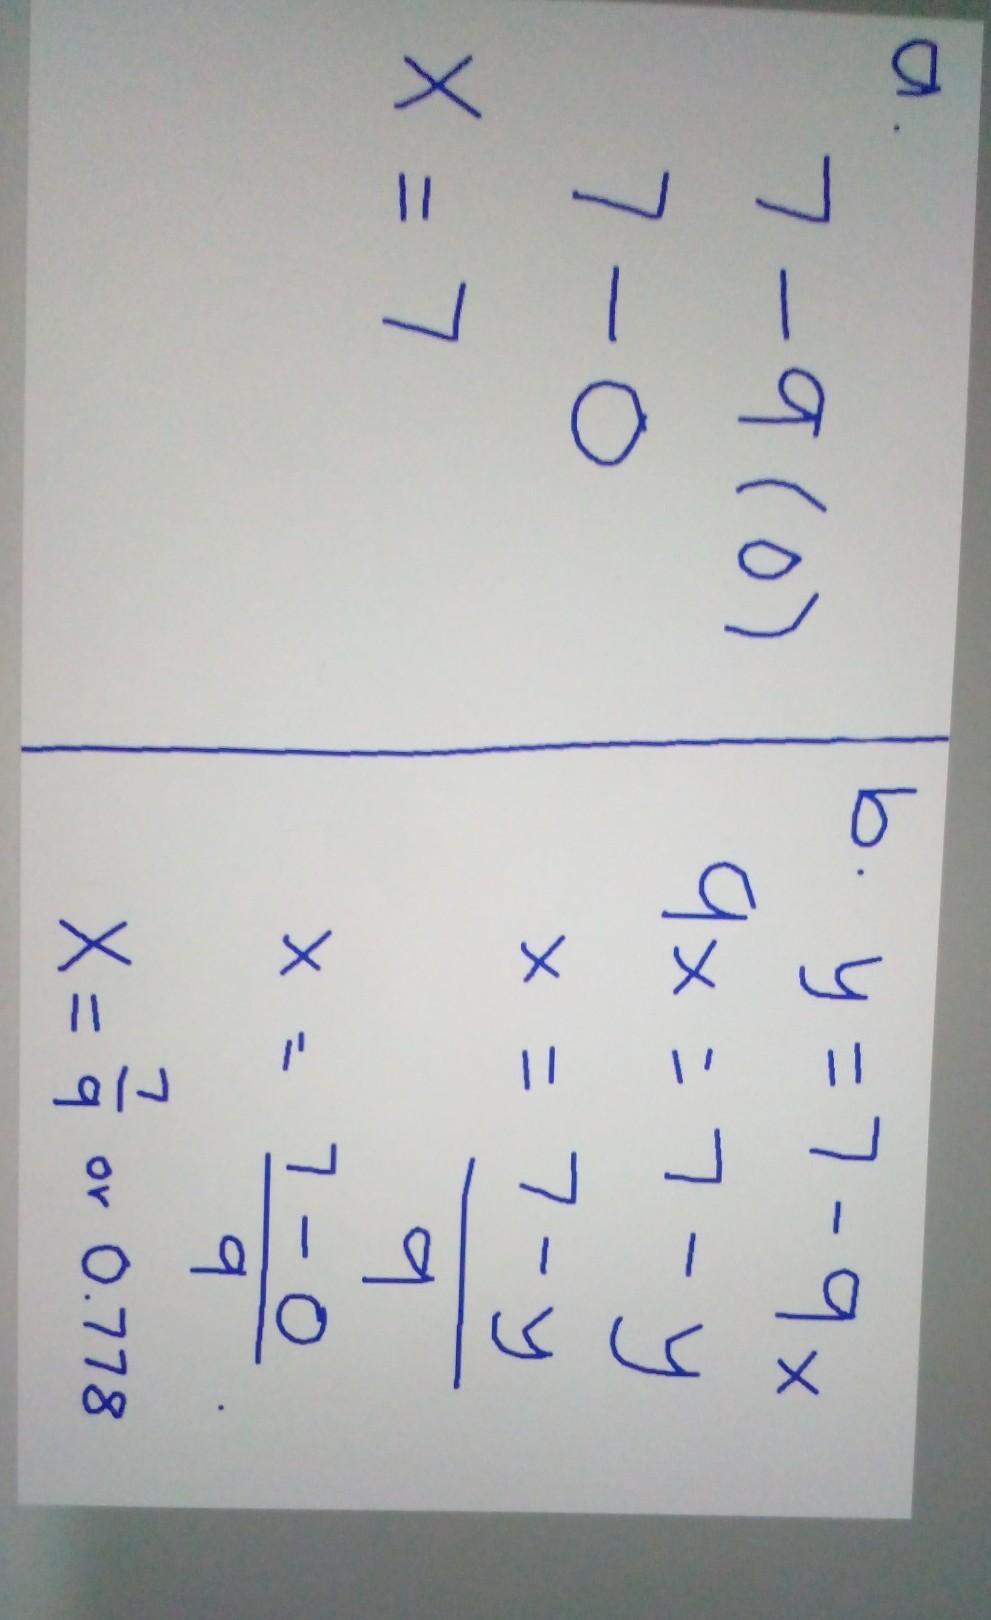 a.
7 - 9 (0)
7 - 0
X = 7
b. y = 7 - 9x
9x = 7 - y
x = 7 - y
9
x = 7 - 0
9
X = 7/9 or 0.778